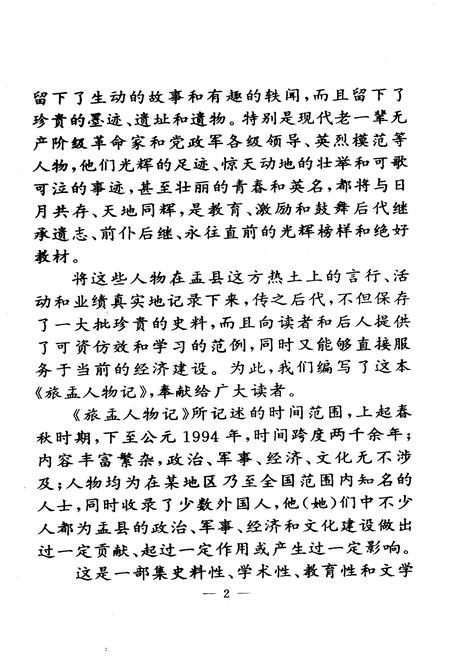 留下了生动的故事和有趣的轶闻，而且留下了
珍贵的墨迹、遗址和遗物。特别是现代老一辈无
产阶级革命家和党政军各级领导、英烈模范等
人物，他们光辉的足迹、惊天动地的壮举和可歌
可泣的事迹，甚至壮丽的青春和英名，都将与日
月共存、天地同辉，是教育、激励和鼓舞后代继
承遗志、前仆后继、永往直前的光辉榜样和绝好
教材。
将这些人物在盂县这方热土上的言行、活
动和业绩真实地记录下来，传之后代，不但保存
了一大批珍贵的史料，而且向读者和后人提供
了可资仿效和学习的范例，同时又能够直接服
务于当前的经济建设。为此，我们编写了这本
《旅盂人物记》，奉献给广大读者。
《旅盂人物记》所记述的时间范围，上起春
秋时期，下至公元1994年，时间跨度两千余年；
内容丰富繁杂，政治、军事、经济、文化无不涉
及；人物均为在某地区乃至全国范围内知名的
人士，同时收录了少数外国人，他（她）们中不少
人都为盂县的政治、军事、经济和文化建设做出
过一定贡献、起过一定作用或产生过一定影响。
这是一部集史料性、学术性、教育性和文学
— 2 —